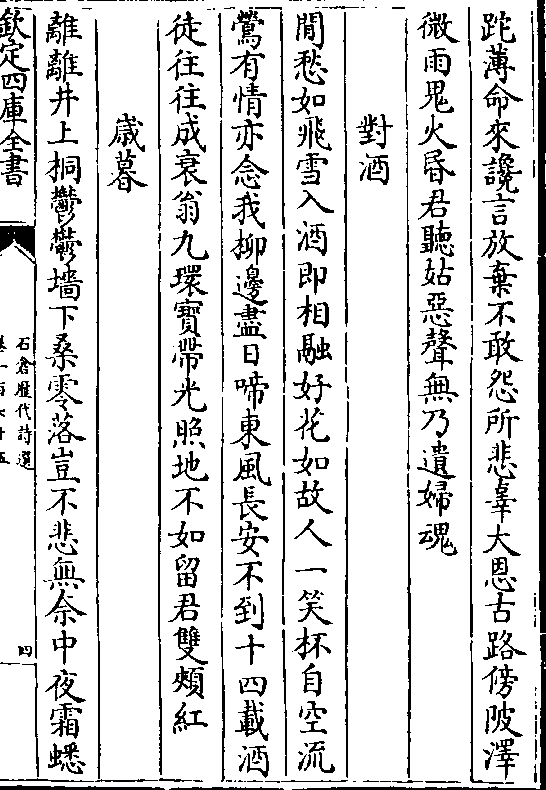 跎薄命來讒言放棄不敢怨所悲辜大恩古路傍陂澤
微雨鬼火昏君聽姑惡聲無乃遣婦魂
對酒
閒愁如飛雪入酒即相融好花如故人一笑杯自空流
鶯有情亦念我柳邊盡日啼東風長安不到十四載酒
徒往往成衰翁九環寳帶光照地不如留君雙頰紅
歳暮
離離井上桐鬱鬱墻下桑零落豈不悲無奈中夜霜蟋
欽定四庫全書
石倉歴代詩選
卷一百七十五
四